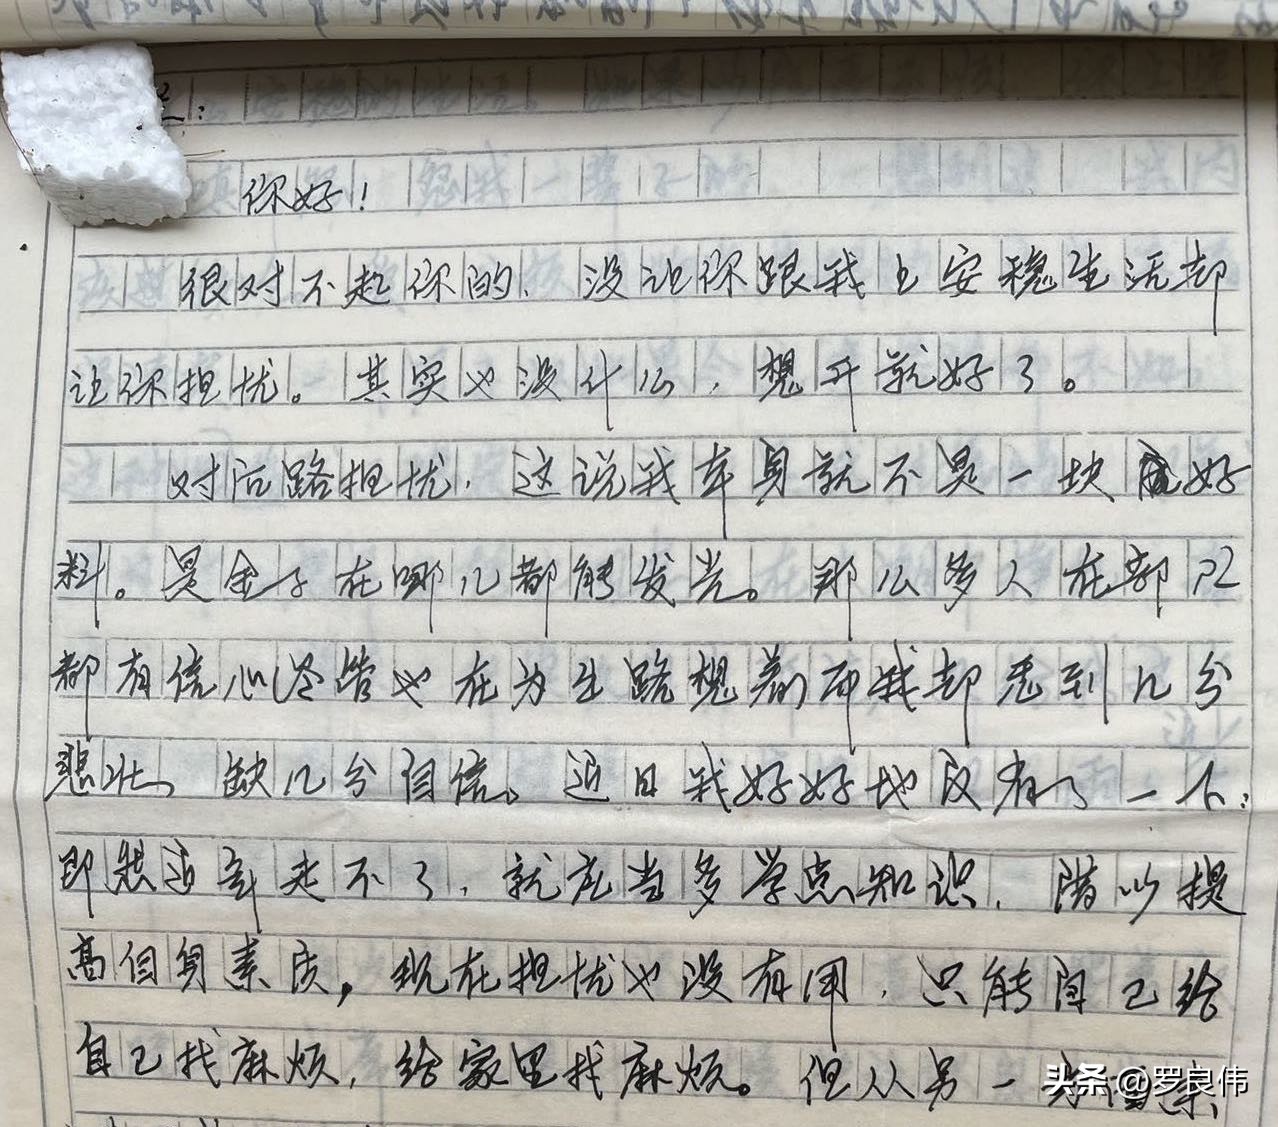 你好！
很对不起你的，没让你跟我上安稳生活却
让你担忧。其实也没什么，想开就好了。
对后路担忧，这说我本身就不是一块好
料。是金子在哪儿都能发光。那么多人在部队
都有信心尽管也在为生路想着而我却悲到几分
悲壮，缺几分自信。近日我好好地反省了一下：
即然近年走不了，就应当多学点知识，借以提
高自身素质，现在担忧也没有用，只能自己给
自己找麻烦，给家里找麻烦。但从另一
头条 @罗良伟